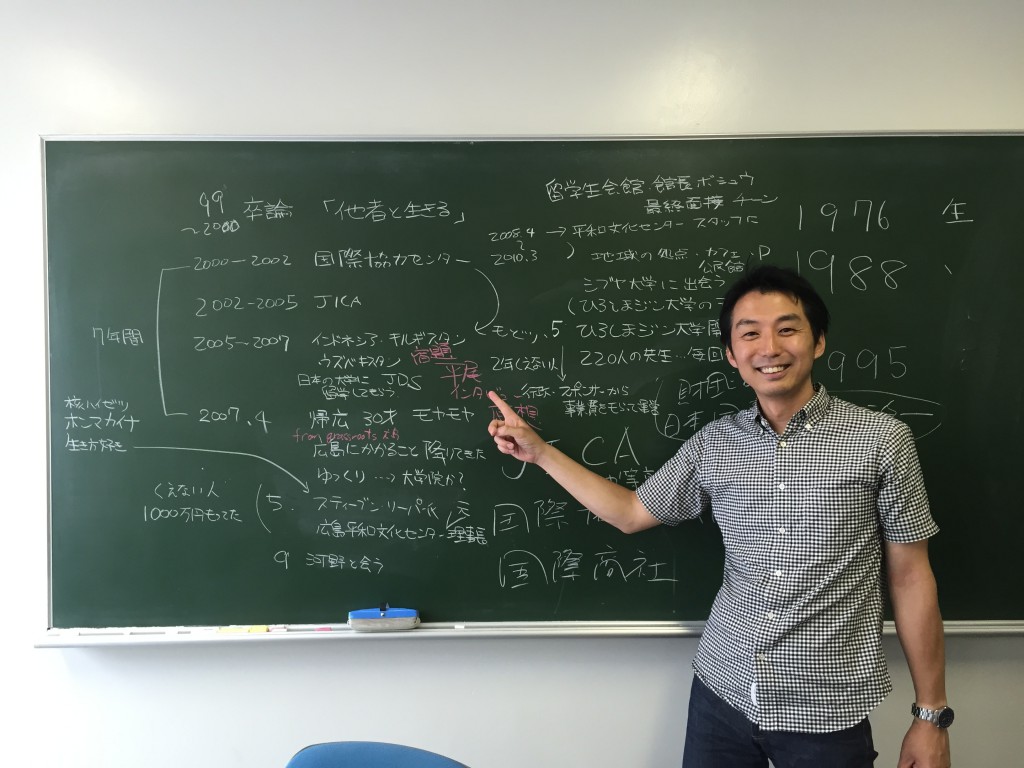 99
~2000 卒論 「他者と生きる」
2000－2002 国際協力センター
2002-2005 JICA
2005～2007 インドネシア・キルギスタン
ウズベキスタン
日本の大学に JDS
留学してもらう
7年間
2007.4 帰広 30才 モヤモヤ
from grassroots
広島にかかること 降りてきた
ゆっくり …→ 大学院か?
核ハイゼツ
ホンマカイナ
生き方好き
くえない人
1000万円もってた
5. スティーブン・リーパー氏
広島平和文化センター 理事長
9 河野と会う
留学生会館・館長ボシュウ
最終面接
2008.4 → 平和文化センター スタッフに
2010.3
地域の拠点・カフェ・P
公民館
シブヤ大学に出会う
(ひろしまジン大学の
5 ひろしまジン大学開
220人の先生…毎回
2年くえない
行政・スポンサーから
事業費をもらって運営
宿題
財団
日本
1976 生
1988
1995
J CA
国際
国際商社